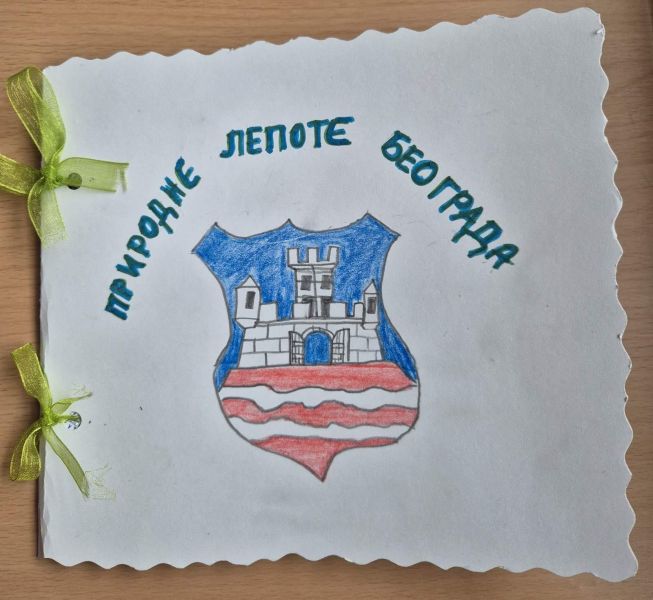 ПРИРОДНЕ ЛЕПОТЕ БЕОГРАДА